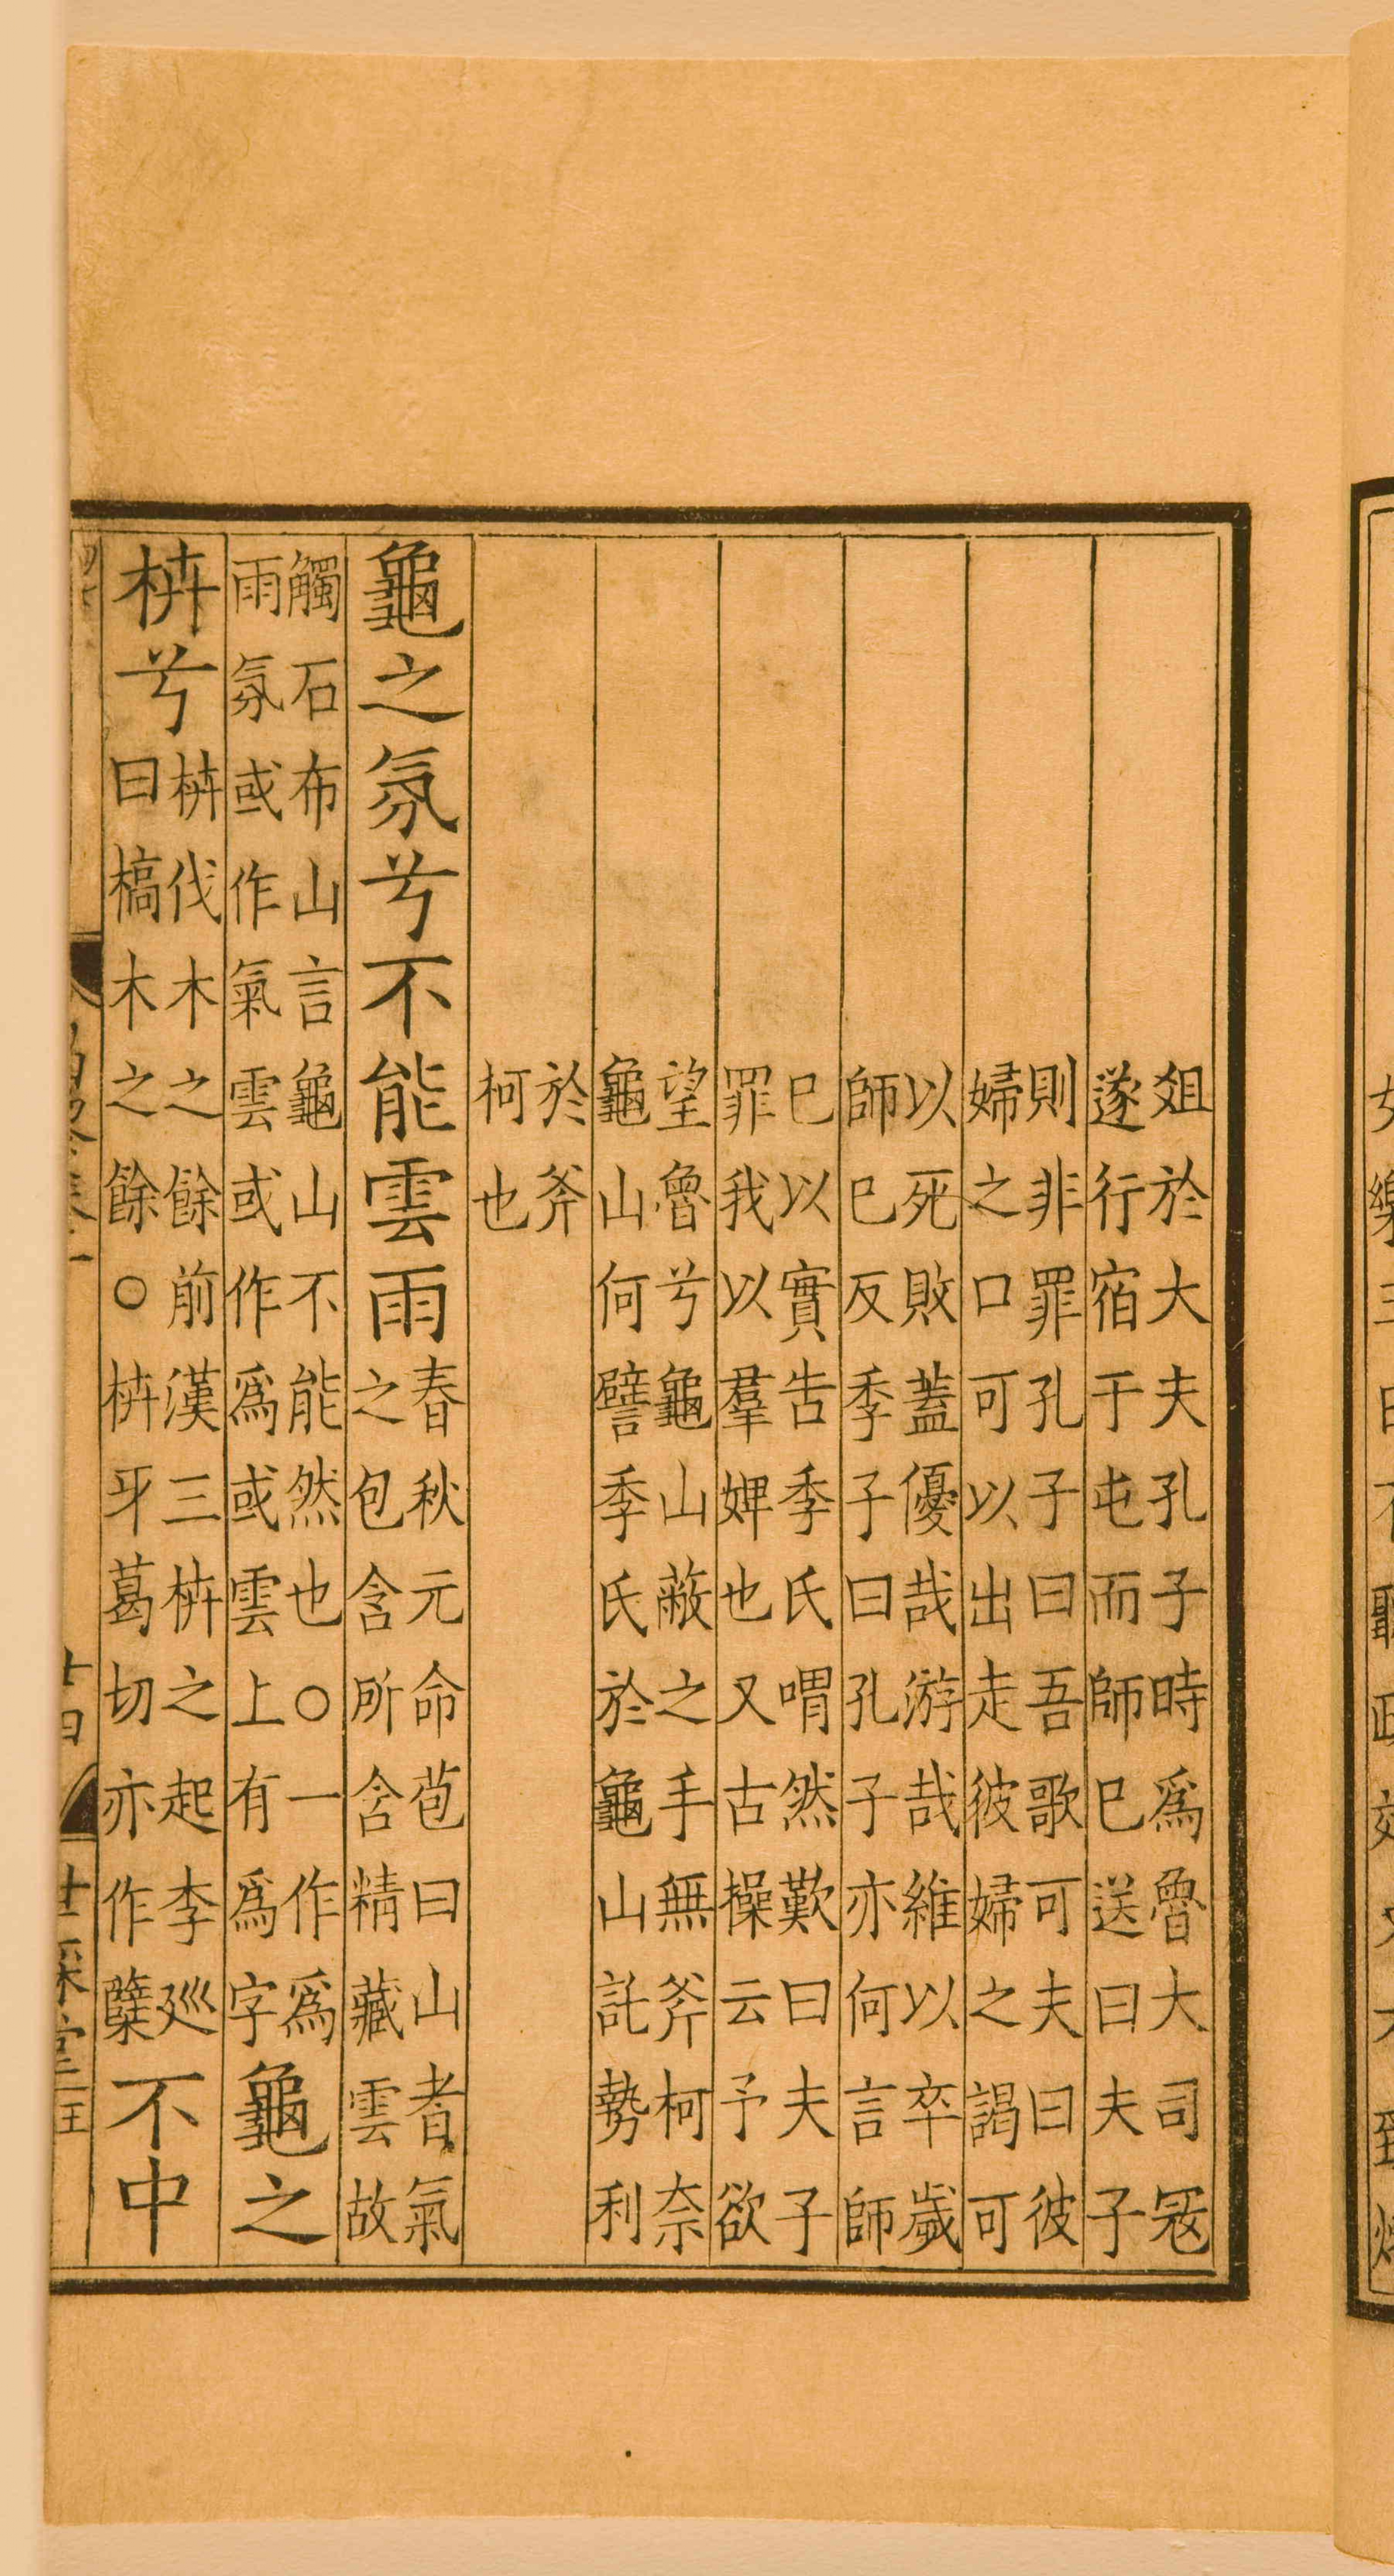 爼於大夫孔子時爲魯大司冦
遂行宿于屯而師巳送曰夫子
則非罪孔子曰吾歌可夫曰彼
婦之口可以出走彼婦之謁可
以死敗蓋優哉游哉維以卒歲
師巳反季子曰孔子亦何言師
巳以實告季氏喟然歎曰夫子
罪我以羣婢也又古操云予欲
望魯兮龜山蔽之手無斧柯奈
龜山何譬季氏於龜山託勢利
於斧
柯也
龜之氛兮不能雲雨
春秋元命苞曰山者氣
之包含所含精藏雲故
觸石布山言龜山不能然也○一作爲
雨氛或作氣雲或作爲或雲上有爲字
龜之
枿兮
枿伐木之餘前漢三枿之起李廵
曰槁木之餘○枿牙葛切亦作櫱
不中